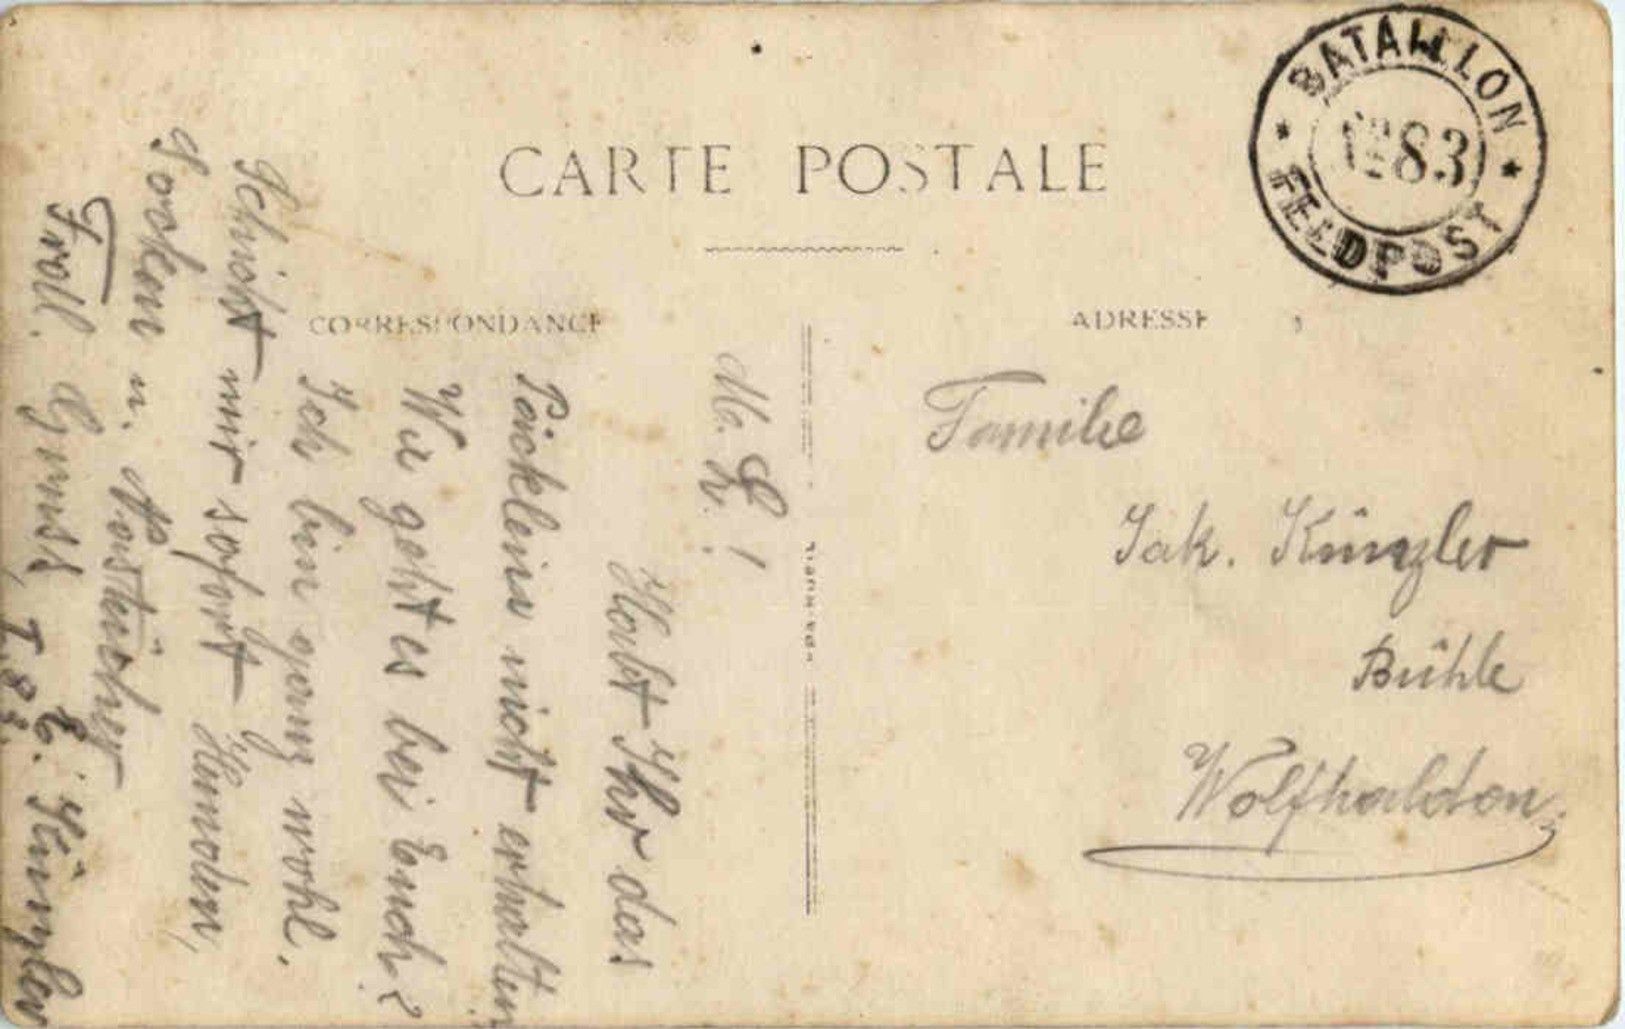 CARTE POSTALE
BATAILLON
No 83
FELDPOST
CORRESPONDANCE
ADRESSE
M. L.!
Habt Ihr das
Päcklein nicht erhalten
Wie geht es bei Euch?
Ich bin ganz wohl.
Schickt mir sofort Hemden,
Socken u. Nastücher
Frdl. Gruss, E. Künzler
I. 83
Familie
Jak. Künzler
Bühle
Wolfhalden